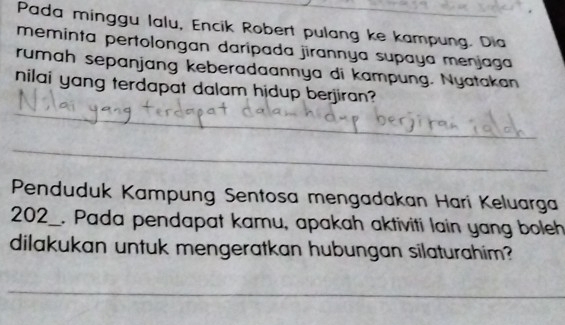 Pada minggu lalu, Encik Robert pulang ke kampung. Dia
meminta pertolongan daripada jirannya supaya menjaga
rumah sepanjang keberadaannya di kampung. Nyatakan
nilai yang terdapat dalam hidup berjiran?
Nilai yang terdapat dalam hidup berjiran ialah
Penduduk Kampung Sentosa mengadakan Hari Keluarga
202_. Pada pendapat kamu, apakah aktiviti lain yang boleh
dilakukan untuk mengeratkan hubungan silaturahim?